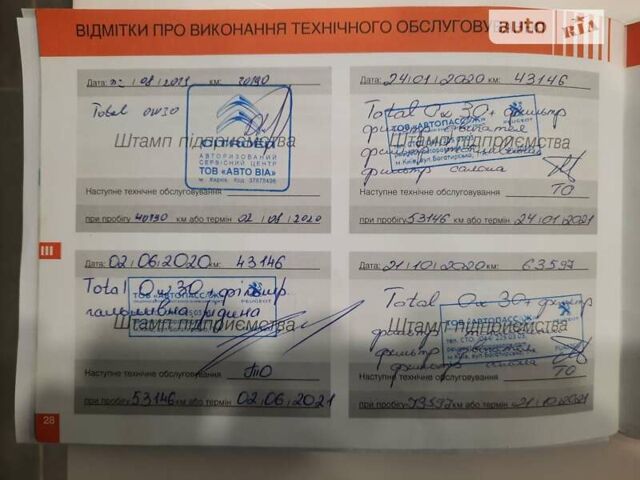 ВІДМІТКИ ПРО ВИКОНАННЯ ТЕХНІЧНОГО ОБСЛУГОВУ
auto RIA
Дата: 08 2019 км: 30190
Total 0w30
Штамп підприємства
CITROËN
АВТОРИЗОВАНИЙ
СЕРВІСНИЙ ЦЕНТР
ТОВ «АВТО ВІА»
м. Харків
Наступне технічне обслуговування
при пробігу 40190 км або термін 02 08 2020
Дата: 24 01 2020 км: 43146
Total 0x30 + фільтр
фільтр
Штамп підприємства
ТОВ "АВТОПАССАЖ"
PEUGEOT
м.Київ, вул.Багатирська,
фильтр салона
Наступне технічне обслуговування ТО
при пробігу 53146 км або термін 24 01 2021
III
Дата: 02 06 2020 км: 43146
Total 0x30 + фільтр
ТОВ "АВТОПАССАЖ"
PEUGEOT
Штамп підприємства
гальмівна рідина
Наступне технічне обслуговування ТО
при пробігу 53146 км або термін 02 06 2021
Дата: 21 10 2020 км: 63597
Total 0x30 + фильтр
Штамп підприємства
ТОВ "АВТОПАССАЖ"
тел. СТО:
м.Київ, вул.Богатирська
фильтр салона
Наступне технічне обслуговування ТО
при пробігу 73597 км або термін 21 10 2021
28